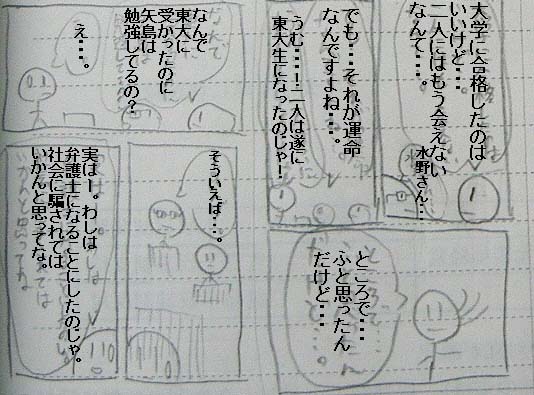 大学に合格したのは
いいけど・・・
二人にはもう会えない
なんて・・・。
水野さん・・
でも・・・それが運命
なんですよね・・・。
うむ・・・！二人は遂に
東大生になったのじゃ！
ところで・・・
ふと思ったん
だけど・・・
なんで
東大に
受かったのに
矢島は
勉強してるの？
え・・・。
そういえば・・・。
実はー。わしは
弁護士になることにしたのじゃ。
社会に騙されては
いかんと思ってな。